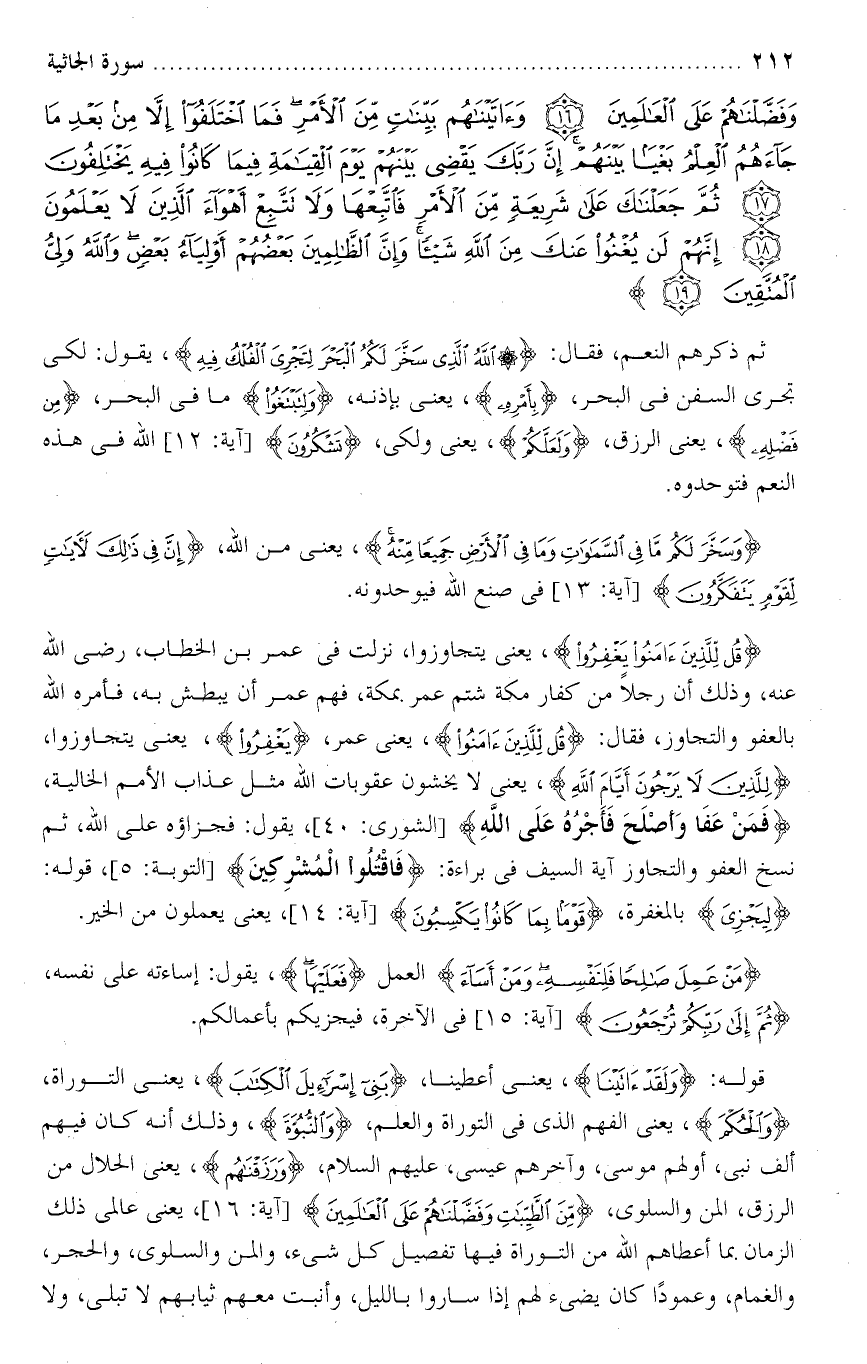 ٢١٢ ........................................................................ سورة الجاثية
وَفَضَّلْنَاهُمْ عَلَى ٱلْعَالَمِينَ ﴿١٦﴾ وَءَاتَيْنَاهُم بَيِّنَاتٍ مِّنَ ٱلْأَمْرِ ۖ فَمَا ٱخْتَلَفُوٓا۟ إِلَّا مِنۢ بَعْدِ مَا
جَآءَهُمُ ٱلْعِلْمُ بَغْيًۢا بَيْنَهُمْ ۚ إِنَّ رَبَّكَ يَقْضِى بَيْنَهُمْ يَوْمَ ٱلْقِيَامَةِ فِيمَا كَانُوا۟ فِيهِ يَخْتَلِفُونَ
﴿١٧﴾ ثُمَّ جَعَلْنَاكَ عَلَىٰ شَرِيعَةٍ مِّنَ ٱلْأَمْرِ فَٱتَّبِعْهَا وَلَا نَتَّبِعْ أَهْوَآءَ ٱلَّذِينَ لَا يَعْلَمُونَ
﴿١٨﴾ إِنَّهُمْ لَن يُغْنُوا۟ عَنكَ مِنَ ٱللَّهِ شَيْـًٔا ۚ وَإِنَّ ٱلظَّالِمِينَ بَعْضُهُمْ أَوْلِيَآءُ بَعْضٍ ۖ وَٱللَّهُ وَلِىُّ
ٱلْمُتَّقِينَ ﴿١٩﴾ ﴾
ثم ذكرهم النعم، فقال: ﴿ ۞ ٱللَّهُ ٱلَّذِى سَخَّرَ لَكُمُ ٱلْبَحْرَ لِتَجْرِىَ ٱلْفُلْكُ فِيهِ ﴾، يقول: لكى
تجرى السفن فى البحر، ﴿بِأَمْرِهِۦ﴾، يعنى بإذنه، ﴿وَلِتَبْتَغُوا۟﴾ ما فى البحر، ﴿مِن
فَضْلِهِۦ﴾، يعنى الرزق، ﴿وَلَعَلَّكُمْ﴾، يعنى ولكى، ﴿تَشْكُرُونَ﴾ [آية: ١٢] الله فى هذه
النعم فتوحدوه.
﴿وَسَخَّرَ لَكُم مَّا فِى ٱلسَّمَٰوَٰتِ وَمَا فِى ٱلْأَرْضِ جَمِيعًا مِّنْهُ ۚ﴾، يعنى من الله، ﴿إِنَّ فِى ذَٰلِكَ لَءَايَٰتٍ
لِّقَوْمٍ يَتَفَكَّرُونَ﴾ [آية: ١٣] فى صنع الله فيوحدونه.
﴿قُل لِّلَّذِينَ ءَامَنُوا۟ يَغْفِرُوا۟﴾، يعنى يتجاوزوا، نزلت فى عمر بن الخطاب، رضى الله
عنه، وذلك أن رجلاً من كفار مكة شتم عمر بمكة، فهم عمر أن يبطش به، فأمره الله
بالعفو والتجاوز، فقال: ﴿قُل لِّلَّذِينَ ءَامَنُوا۟﴾، يعنى عمر، ﴿يَغْفِرُوا۟﴾، يعنى يتجاوزوا،
﴿لِلَّذِينَ لَا يَرْجُونَ أَيَّامَ ٱللَّهِ﴾، يعنى لا يخشون عقوبات الله مثل عذاب الأمم الخالية،
﴿فَمَنْ عَفَا وَأَصْلَحَ فَأَجْرُهُ عَلَى اللَّهِ﴾ [الشورى: ٤٠]، يقول: فجزاؤه على الله، ثم
نسخ العفو والتجاوز آية السيف فى براءة: ﴿فَاقْتُلُوا الْمُشْرِكِينَ﴾ [التوبة: ٥]، قوله:
﴿لِيَجْزِىَ﴾ بالمغفرة، ﴿قَوْمًۢا بِمَا كَانُوا۟ يَكْسِبُونَ﴾ [آية: ١٤]، يعنى يعملون من الخير.
﴿مَنْ عَمِلَ صَٰلِحًا فَلِنَفْسِهِۦ ۖ وَمَنْ أَسَآءَ﴾ العمل ﴿فَعَلَيْهَا ۖ﴾، يقول: إساءته على نفسه،
﴿ثُمَّ إِلَىٰ رَبِّكُمْ تُرْجَعُونَ﴾ [آية: ١٥] فى الآخرة، فيجزيكم بأعمالكم.
قوله: ﴿وَلَقَدْ ءَاتَيْنَا﴾، يعنى أعطينا، ﴿بَنِىٓ إِسْرَٰٓءِيلَ ٱلْكِتَٰبَ﴾، يعنى التوراة،
﴿وَٱلْحُكْمَ﴾، يعنى الفهم الذى فى التوراة والعلم، ﴿وَٱلنُّبُوَّةَ﴾، وذلك أنه كان فيهم
ألف نبى، أولهم موسى، وآخرهم عيسى، عليهم السلام، ﴿وَرَزَقْنَٰهُم﴾، يعنى الحلال من
الرزق، المن والسلوى، ﴿مِّنَ ٱلطَّيِّبَٰتِ وَفَضَّلْنَٰهُمْ عَلَى ٱلْعَٰلَمِينَ﴾ [آية: ١٦]، يعنى عالمى ذلك
الزمان بما أعطاهم الله من التوراة فيها تفصيل كل شىء، والمن والسلوى، والحجر،
والغمام، وعمودًا كان يضىء لهم إذا ساروا بالليل، وأنبت معهم ثيابهم لا تبلى، ولا